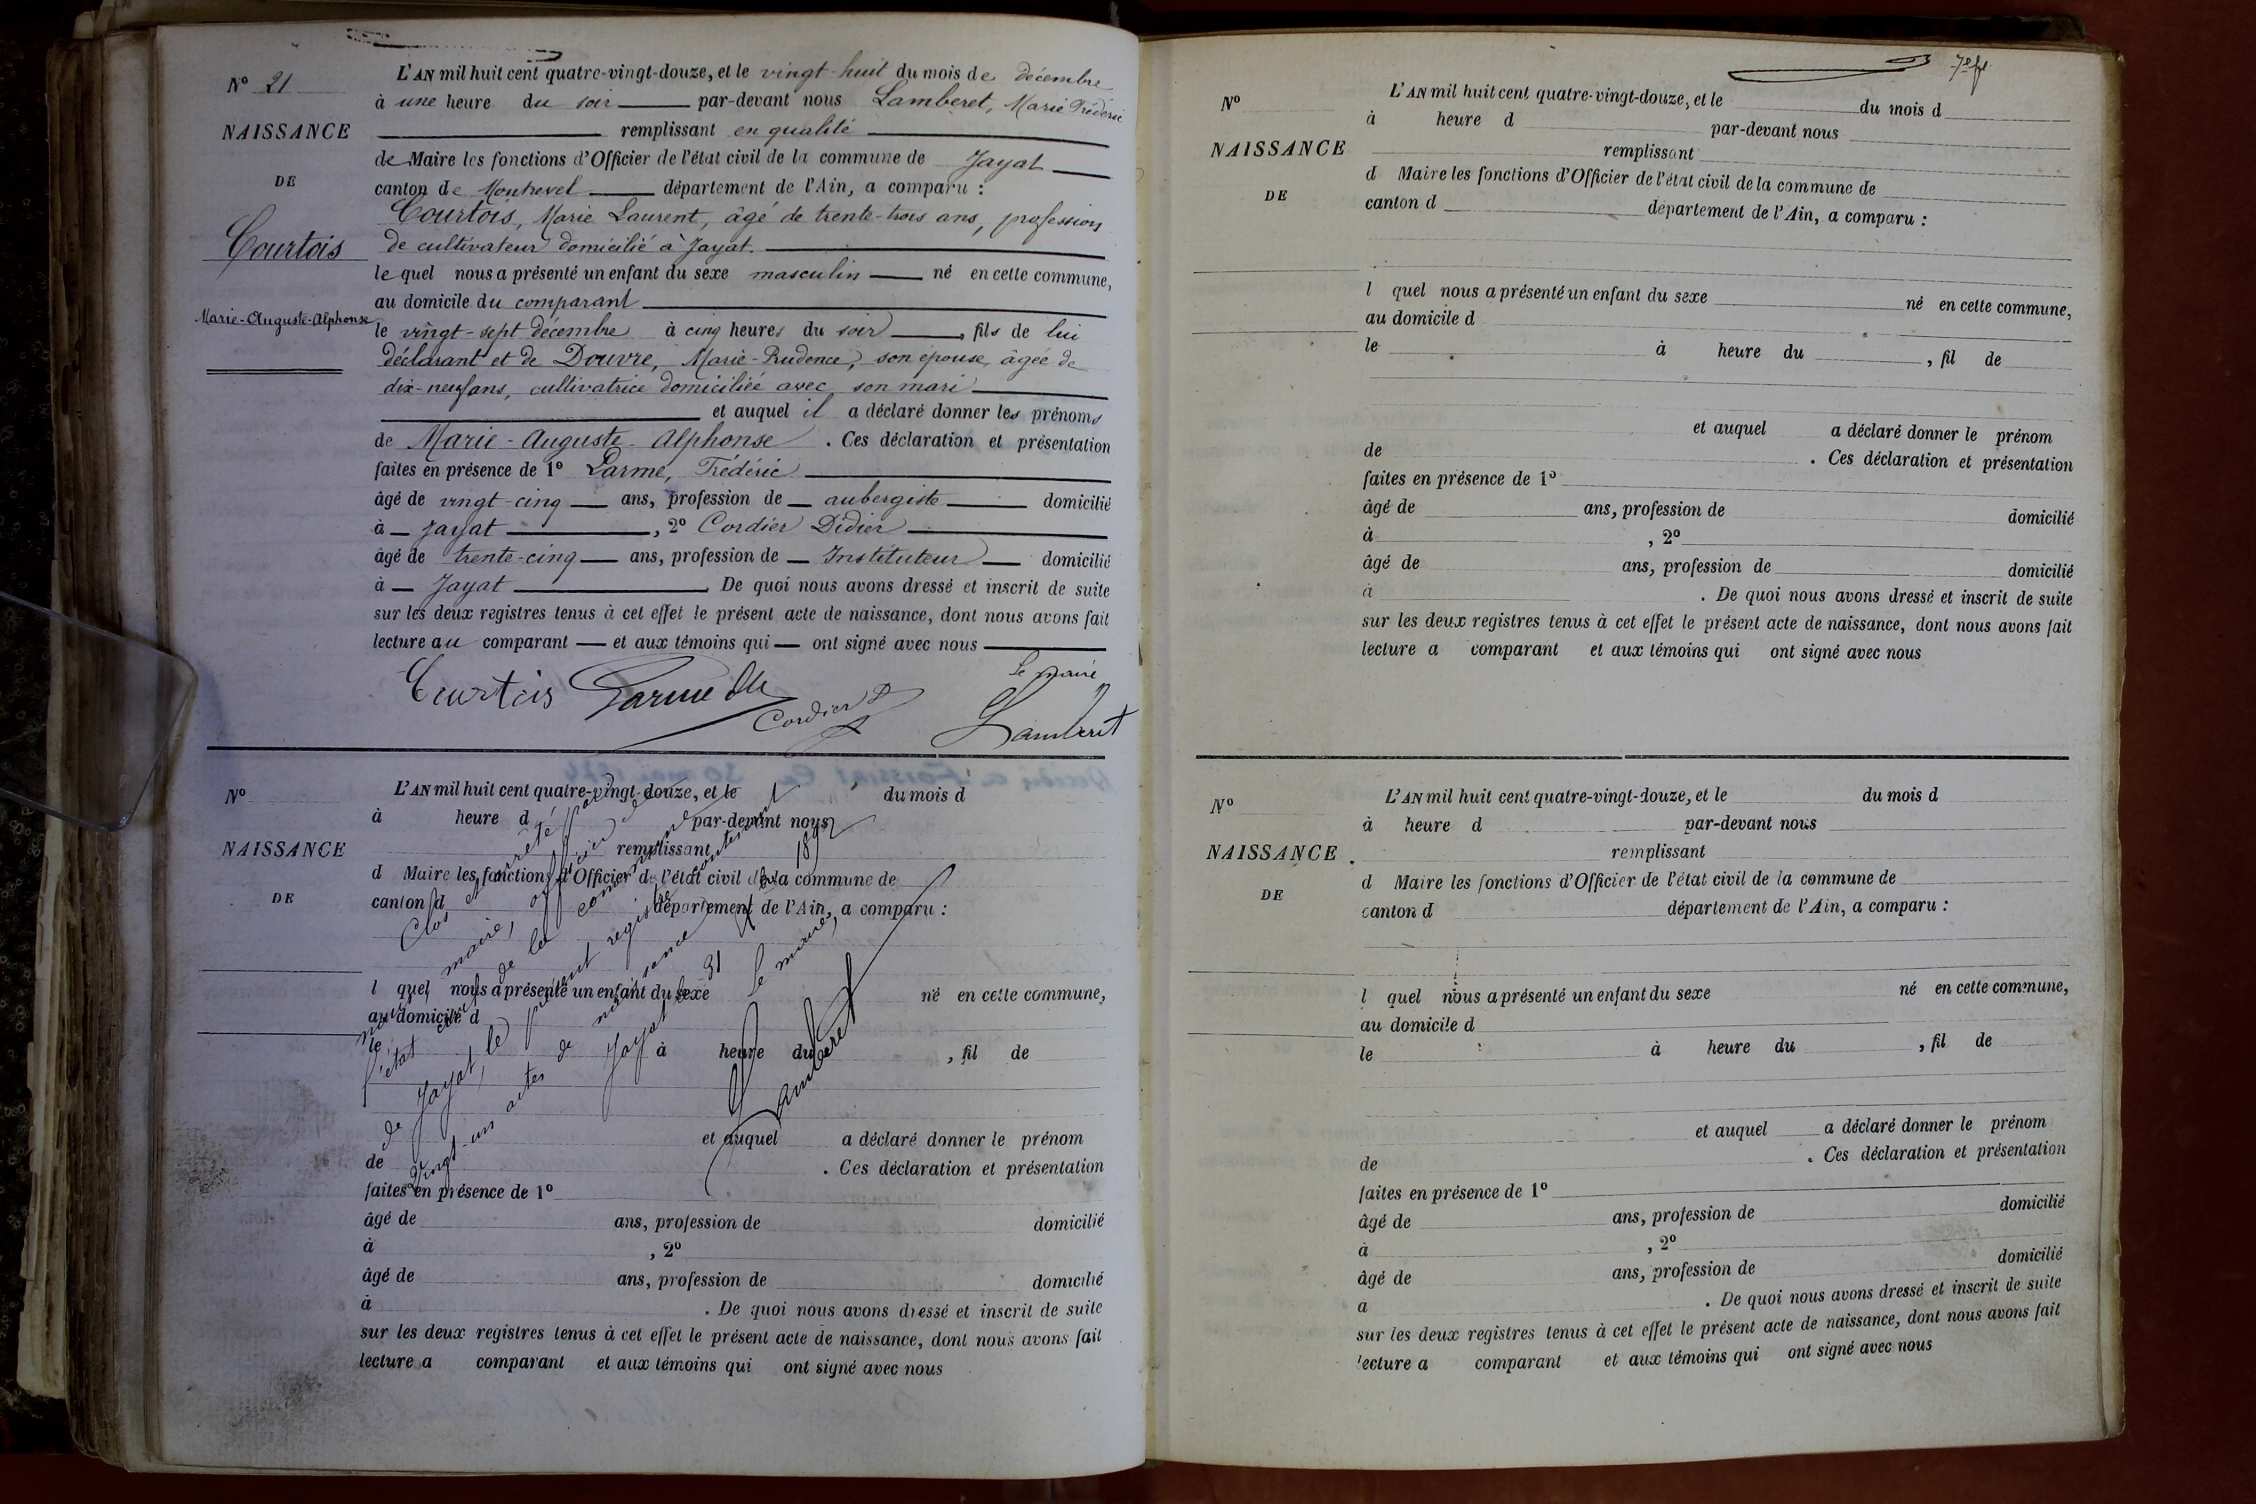 N° 21
NAISSANCE
DE
Courtois
Marie-Auguste-Alphonse
L'AN mil huit cent quatre-vingt-douze, et le vingt-huit du mois de décembre
à une heure du soir par-devant nous Lamberet, Marie Frédéric
remplissant en qualité
de Maire les fonctions d'Officier de l'état civil de la commune de Jayat
canton de Montrevel département de l'Ain, a comparu :
Courtois, Marie Laurent, âgé de trente-trois ans, profession
de cultivateur domicilié à Jayat.
lequel nous a présenté un enfant du sexe masculin né en cette commune,
au domicile du comparant
le vingt-sept décembre à cinq heures du soir, fils de lui
déclarant et de Douvre, Marie-Prudence, son épouse, âgée de
dix-neuf ans, cultivatrice domiciliée avec son mari
et auquel il a déclaré donner les prénoms
de Marie-Auguste-Alphonse. Ces déclaration et présentation
faites en présence de 1° Parme, Frédéric
âgé de vingt-cinq ans, profession de aubergiste domicilié
à Jayat, 2° Cordier Didier
âgé de trente-cinq ans, profession de Instituteur domicilié
à Jayat. De quoi nous avons dressé et inscrit de suite
sur les deux registres tenus à cet effet le présent acte de naissance, dont nous avons fait
lecture au comparant et aux témoins qui ont signé avec nous
Le maire
Courtois Parme Cordier D Lamberet
N°
NAISSANCE
DE
L'AN mil huit cent quatre-vingt-douze, et le du mois d
à heure d par-devant nous
remplissant
d Maire les fonctions d'Officier de l'état civil de la commune de
canton d département de l'Ain, a comparu :
l quel nous a présenté un enfant du sexe né en cette commune,
au domicile d
le à heure du , fil de
et auquel a déclaré donner le prénom
de . Ces déclaration et présentation
faites en présence de 1°
âgé de ans, profession de domicilié
à , 2°
âgé de ans, profession de domicilié
à . De quoi nous avons dressé et inscrit de suite
sur les deux registres tenus à cet effet le présent acte de naissance, dont nous avons fait
lecture a comparant et aux témoins qui ont signé avec nous
Clos et arrêté par
nous maire, officier de
l'état civil de la commune
de Jayat, le présent registre contenant
vingt-un actes de naissance
Jayat le 31 1892
Le maire,
Lamberet
N°
NAISSANCE
DE
L'AN mil huit cent quatre-vingt-douze, et le du mois d
à heure d par-devant nous
remplissant
d Maire les fonctions d'Officier de l'état civil de la commune de
canton d département de l'Ain, a comparu :
l quel nous a présenté un enfant du sexe né en cette commune,
au domicile d
le à heure du , fil de
et auquel a déclaré donner le prénom
de . Ces déclaration et présentation
faites en présence de 1°
âgé de ans, profession de domicilié
à , 2°
âgé de ans, profession de domicilié
à . De quoi nous avons dressé et inscrit de suite
sur les deux registres tenus à cet effet le présent acte de naissance, dont nous avons fait
lecture a comparant et aux témoins qui ont signé avec nous
N°
NAISSANCE
DE
L'AN mil huit cent quatre-vingt-douze, et le du mois d
à heure d par-devant nous
remplissant
d Maire les fonctions d'Officier de l'état civil de la commune de
canton d département de l'Ain, a comparu :
l quel nous a présenté un enfant du sexe né en cette commune,
au domicile d
le à heure du , fil de
et auquel a déclaré donner le prénom
de . Ces déclaration et présentation
faites en présence de 1°
âgé de ans, profession de domicilié
à , 2°
âgé de ans, profession de domicilié
a . De quoi nous avons dressé et inscrit de suite
sur les deux registres tenus à cet effet le présent acte de naissance, dont nous avons fait
lecture a comparant et aux témoins qui ont signé avec nous